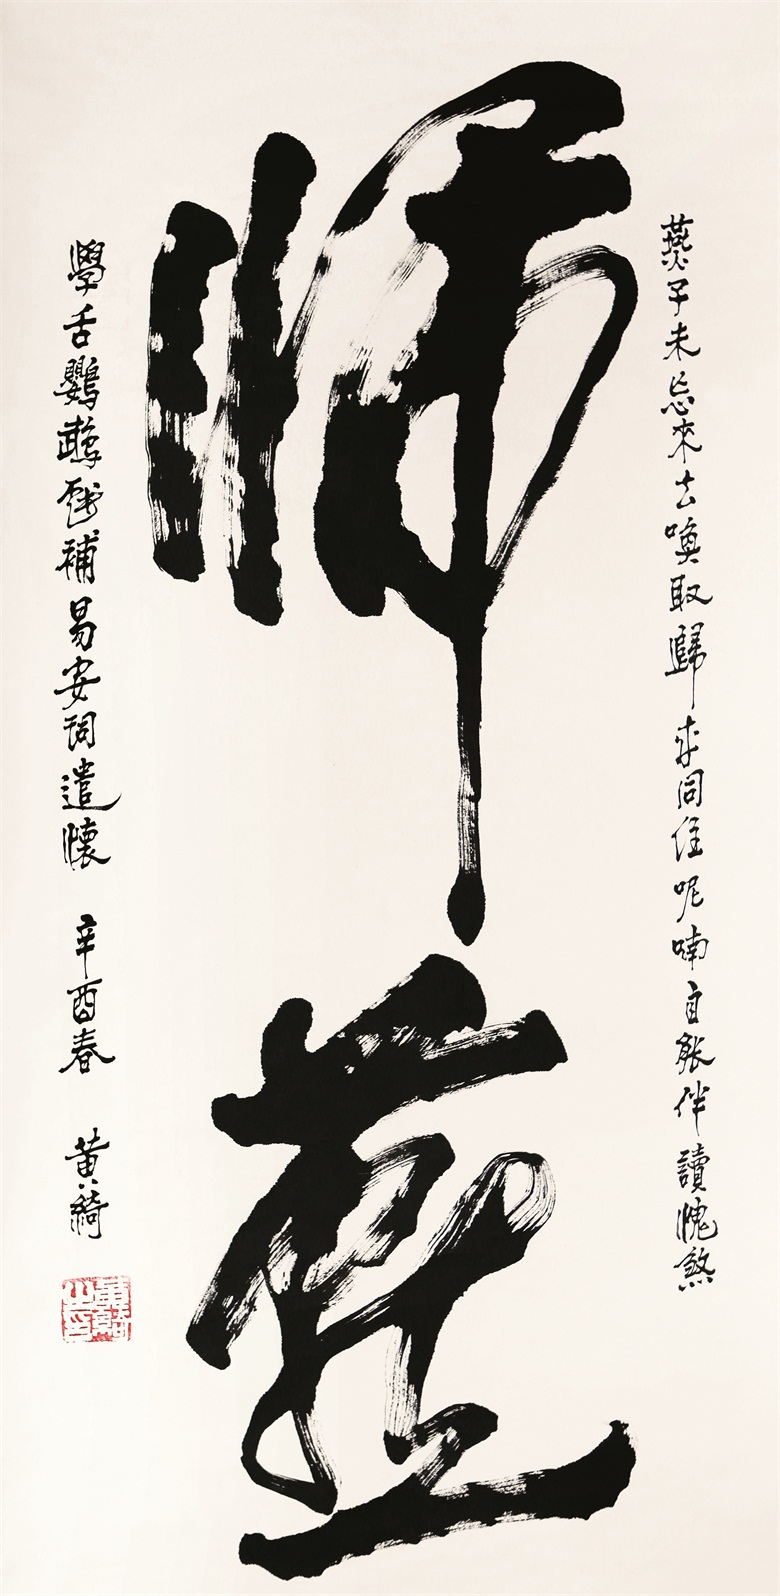 歸燕
燕子未忘來去喚取歸來同住呢喃自能伴讀愧煞
學舌鸚鵡戲補易安詞遣懷 辛酉春 黃綺